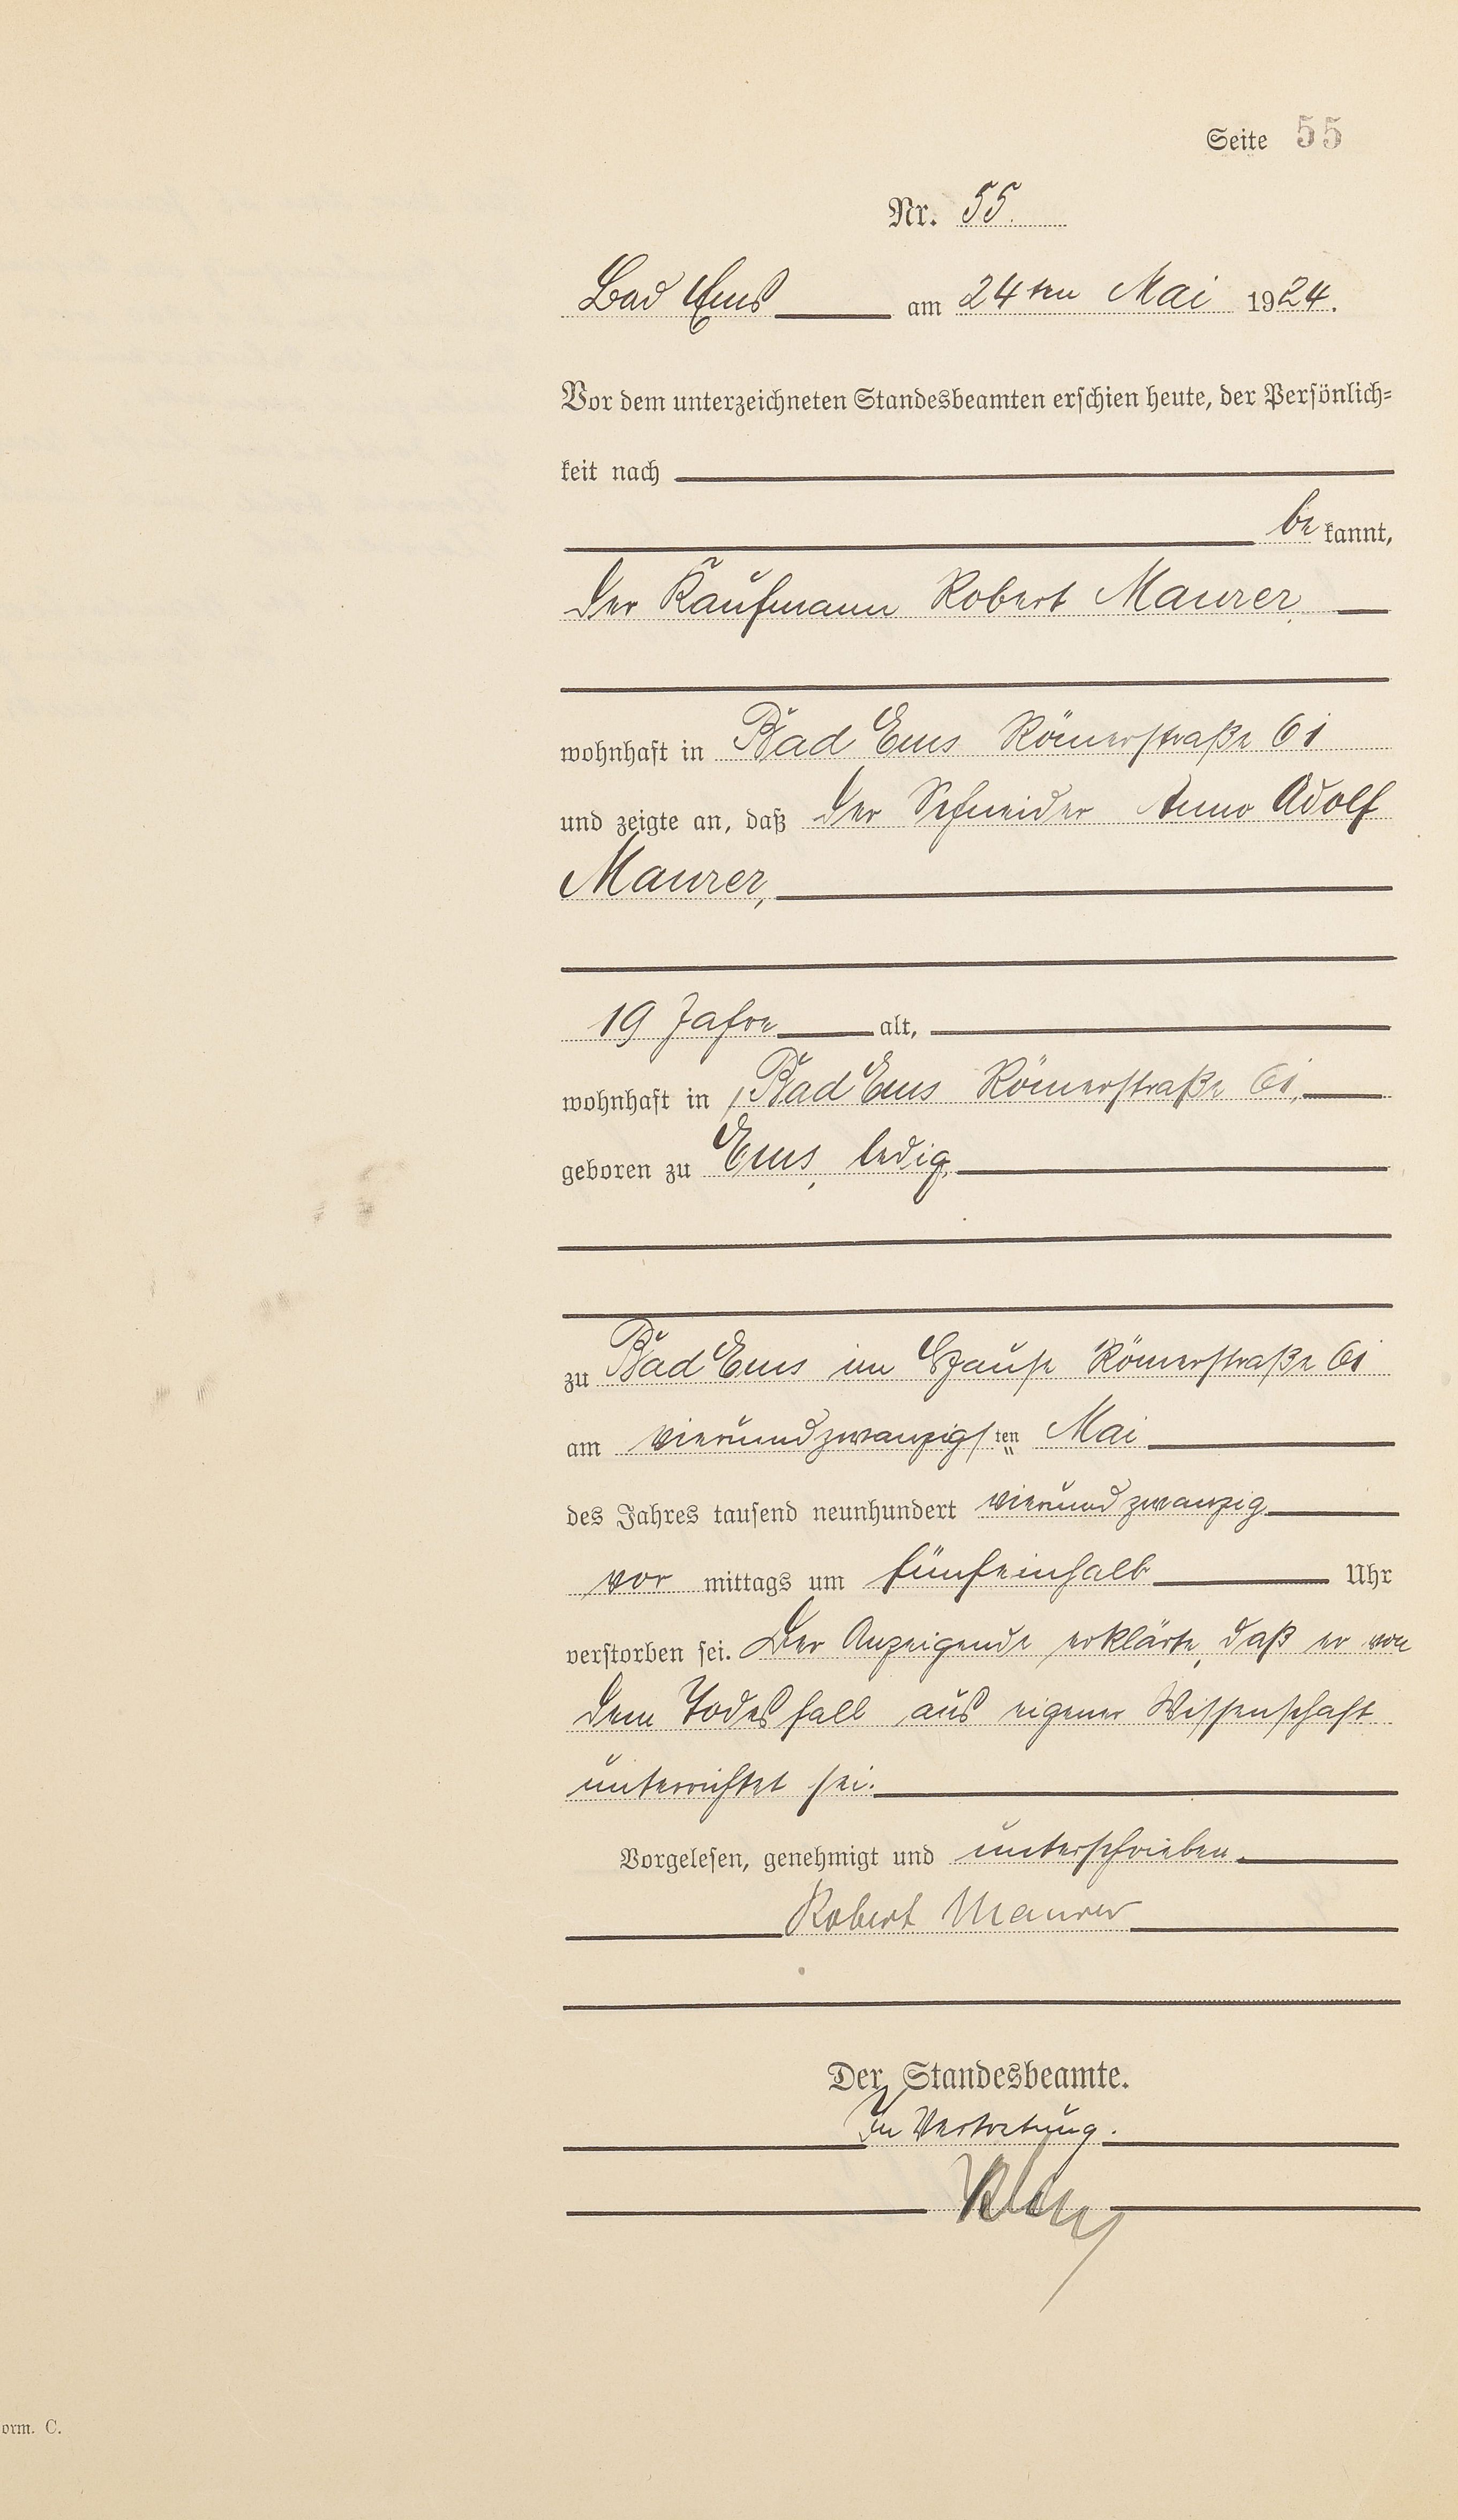 Seite 55
Nr. 55.
Bad Ems am 24ten Mai 1924.
Vor dem unterzeichneten Standesbeamten erschien heute, der Persönlich-
keit nach
be kannt,
der Kaufmann Robert Maurer
wohnhaft in Bad Ems Römerstraße 61
und zeigte an, daß der Schneider Anno Adolf
Maurer,
19 Jahre alt,
wohnhaft in Bad Ems Römerstraße 61,
geboren zu Ems, ledig,
zu Bad Ems im Hause Römerstraße 61
am vierundzwanzigsten Mai
des Jahres tausend neunhundert vierundzwanzig
vor mittags um fünfeinhalb Uhr
verstorben sei. Der Anzeigende erklärte, daß er von
dem Todesfall aus eigener Wissenschaft
unterrichtet sei.
Vorgelesen, genehmigt und unterschrieben.
Robert Maurer
Der Standesbeamte.
In Vertretung.
orm. C.